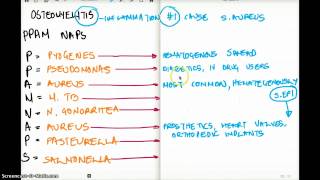 OSTEOMYELITIS → INFLAMMATION #1 CAUSE S. AUREUS
PPAM NAPS
P = PYOGENES → HEMATOGENOUS SPREAD
P = PSEUDOMONAS → DIABETICS, IV DRUG USERS
A = AUREUS → MOST COMMON, HEMATOGENOUSLY
M = M. TB
S. EPI
N = N. GONORRHEA
A = AUREUS → PROSTHETICS, HEART VALVES,
ORTHOPEDIC IMPLANTS
P = PASTEURELLA
S = SALMONELLA
Screencast-O-Matic.com